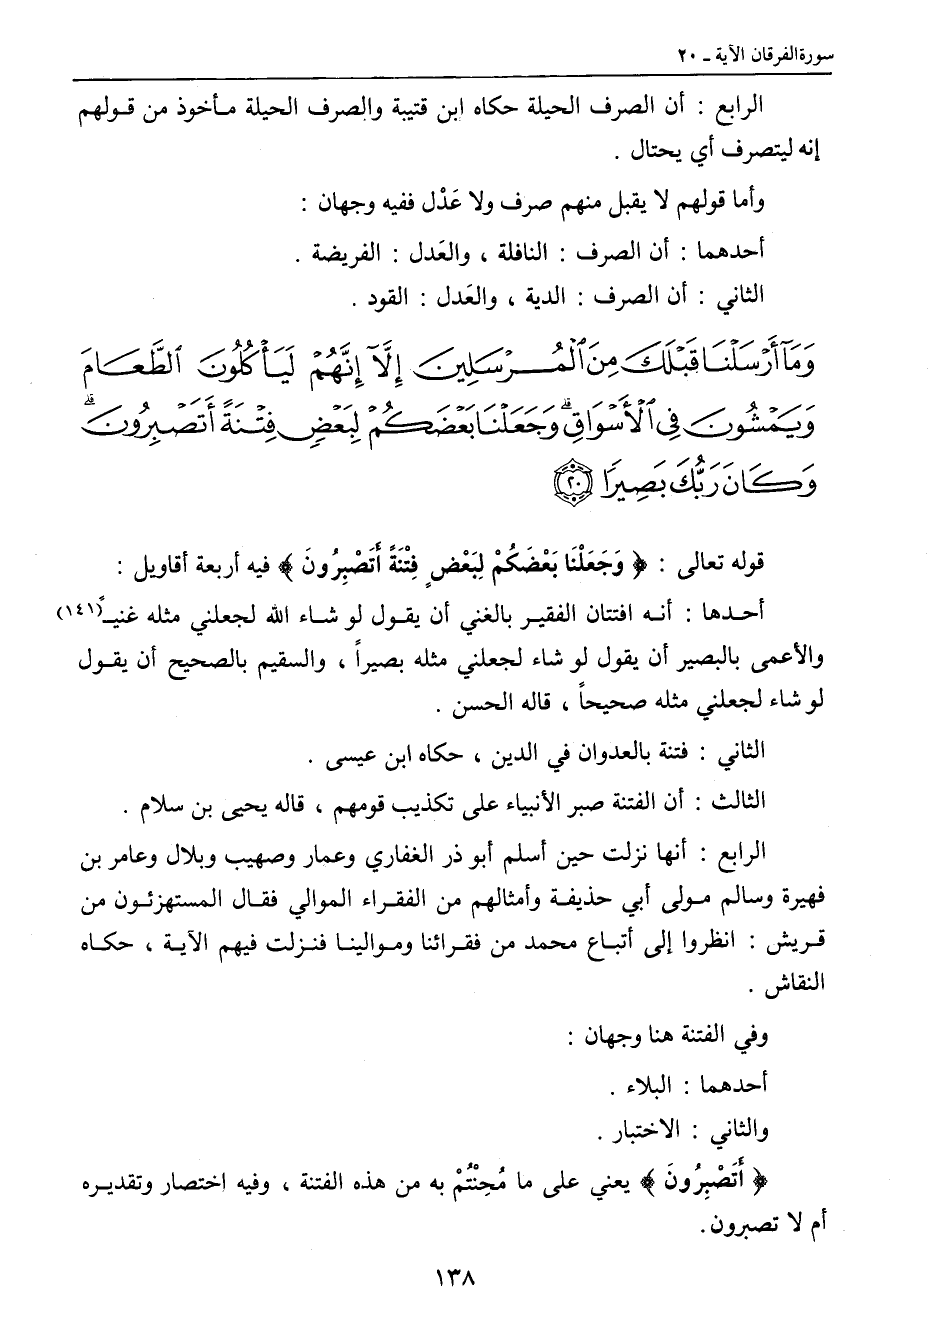 سورة الفرقان الآية ـ ٢٠
الرابع : أن الصرف الحيلة حكاه ابن قتيبة والصرف الحيلة مأخوذ من قولهم
إنه ليتصرف أي يحتال .
وأما قولهم لا يقبل منهم صرف ولا عَدْل ففيه وجهان :
أحدهما : أن الصرف : النافلة ، والعَدل : الفريضة .
الثاني : أن الصرف : الدية ، والعَدل : القود .
وَمَآ أَرْسَلْنَا قَبْلَكَ مِنَ ٱلْمُرْسَلِينَ إِلَّآ إِنَّهُمْ لَيَأْكُلُونَ ٱلطَّعَامَ
وَيَمْشُونَ فِي ٱلْأَسْوَاقِ ۗ وَجَعَلْنَا بَعْضَكُمْ لِبَعْضٍ فِتْنَةً أَتَصْبِرُونَ ۗ
وَكَانَ رَبُّكَ بَصِيرًا ٢٠
قوله تعالى : ﴿ وَجَعَلْنَا بَعْضَكُمْ لِبَعْضٍ فِتْنَةً أَتَصْبِرُونَ ﴾ فيه أربعة أقاويل :
أحدها : أنه افتتان الفقير بالغني أن يقول لو شاء الله لجعلني مثله غنياً(١٤١)
والأعمى بالبصير أن يقول لو شاء لجعلني مثله بصيراً ، والسقيم بالصحيح أن يقول
لو شاء لجعلني مثله صحيحاً ، قاله الحسن .
الثاني : فتنة بالعدوان في الدين ، حكاه ابن عيسى .
الثالث : أن الفتنة صبر الأنبياء على تكذيب قومهم ، قاله يحيى بن سلام .
الرابع : أنها نزلت حين أسلم أبو ذر الغفاري وعمار وصهيب وبلال وعامر بن
فهيرة وسالم مولى أبي حذيفة وأمثالهم من الفقراء الموالي فقال المستهزئون من
قريش : انظروا إلى أتباع محمد من فقرائنا وموالينا فنزلت فيهم الآية ، حكاه
النقاش .
وفي الفتنة هنا وجهان :
أحدهما : البلاء .
والثاني : الاختبار .
﴿ أَتَصْبِرُونَ ﴾ يعني على ما مُحِنْتُمْ به من هذه الفتنة ، وفيه اختصار وتقديره
أم لا تصبرون.
١٣٨